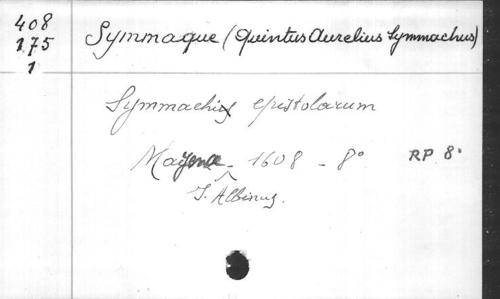 408
175
1
Symmaque (Quintus Aurelius Symmachus)
Symmachi epistolarum
Mayence - 1608 - 8° RP 8°
J. Albinus.